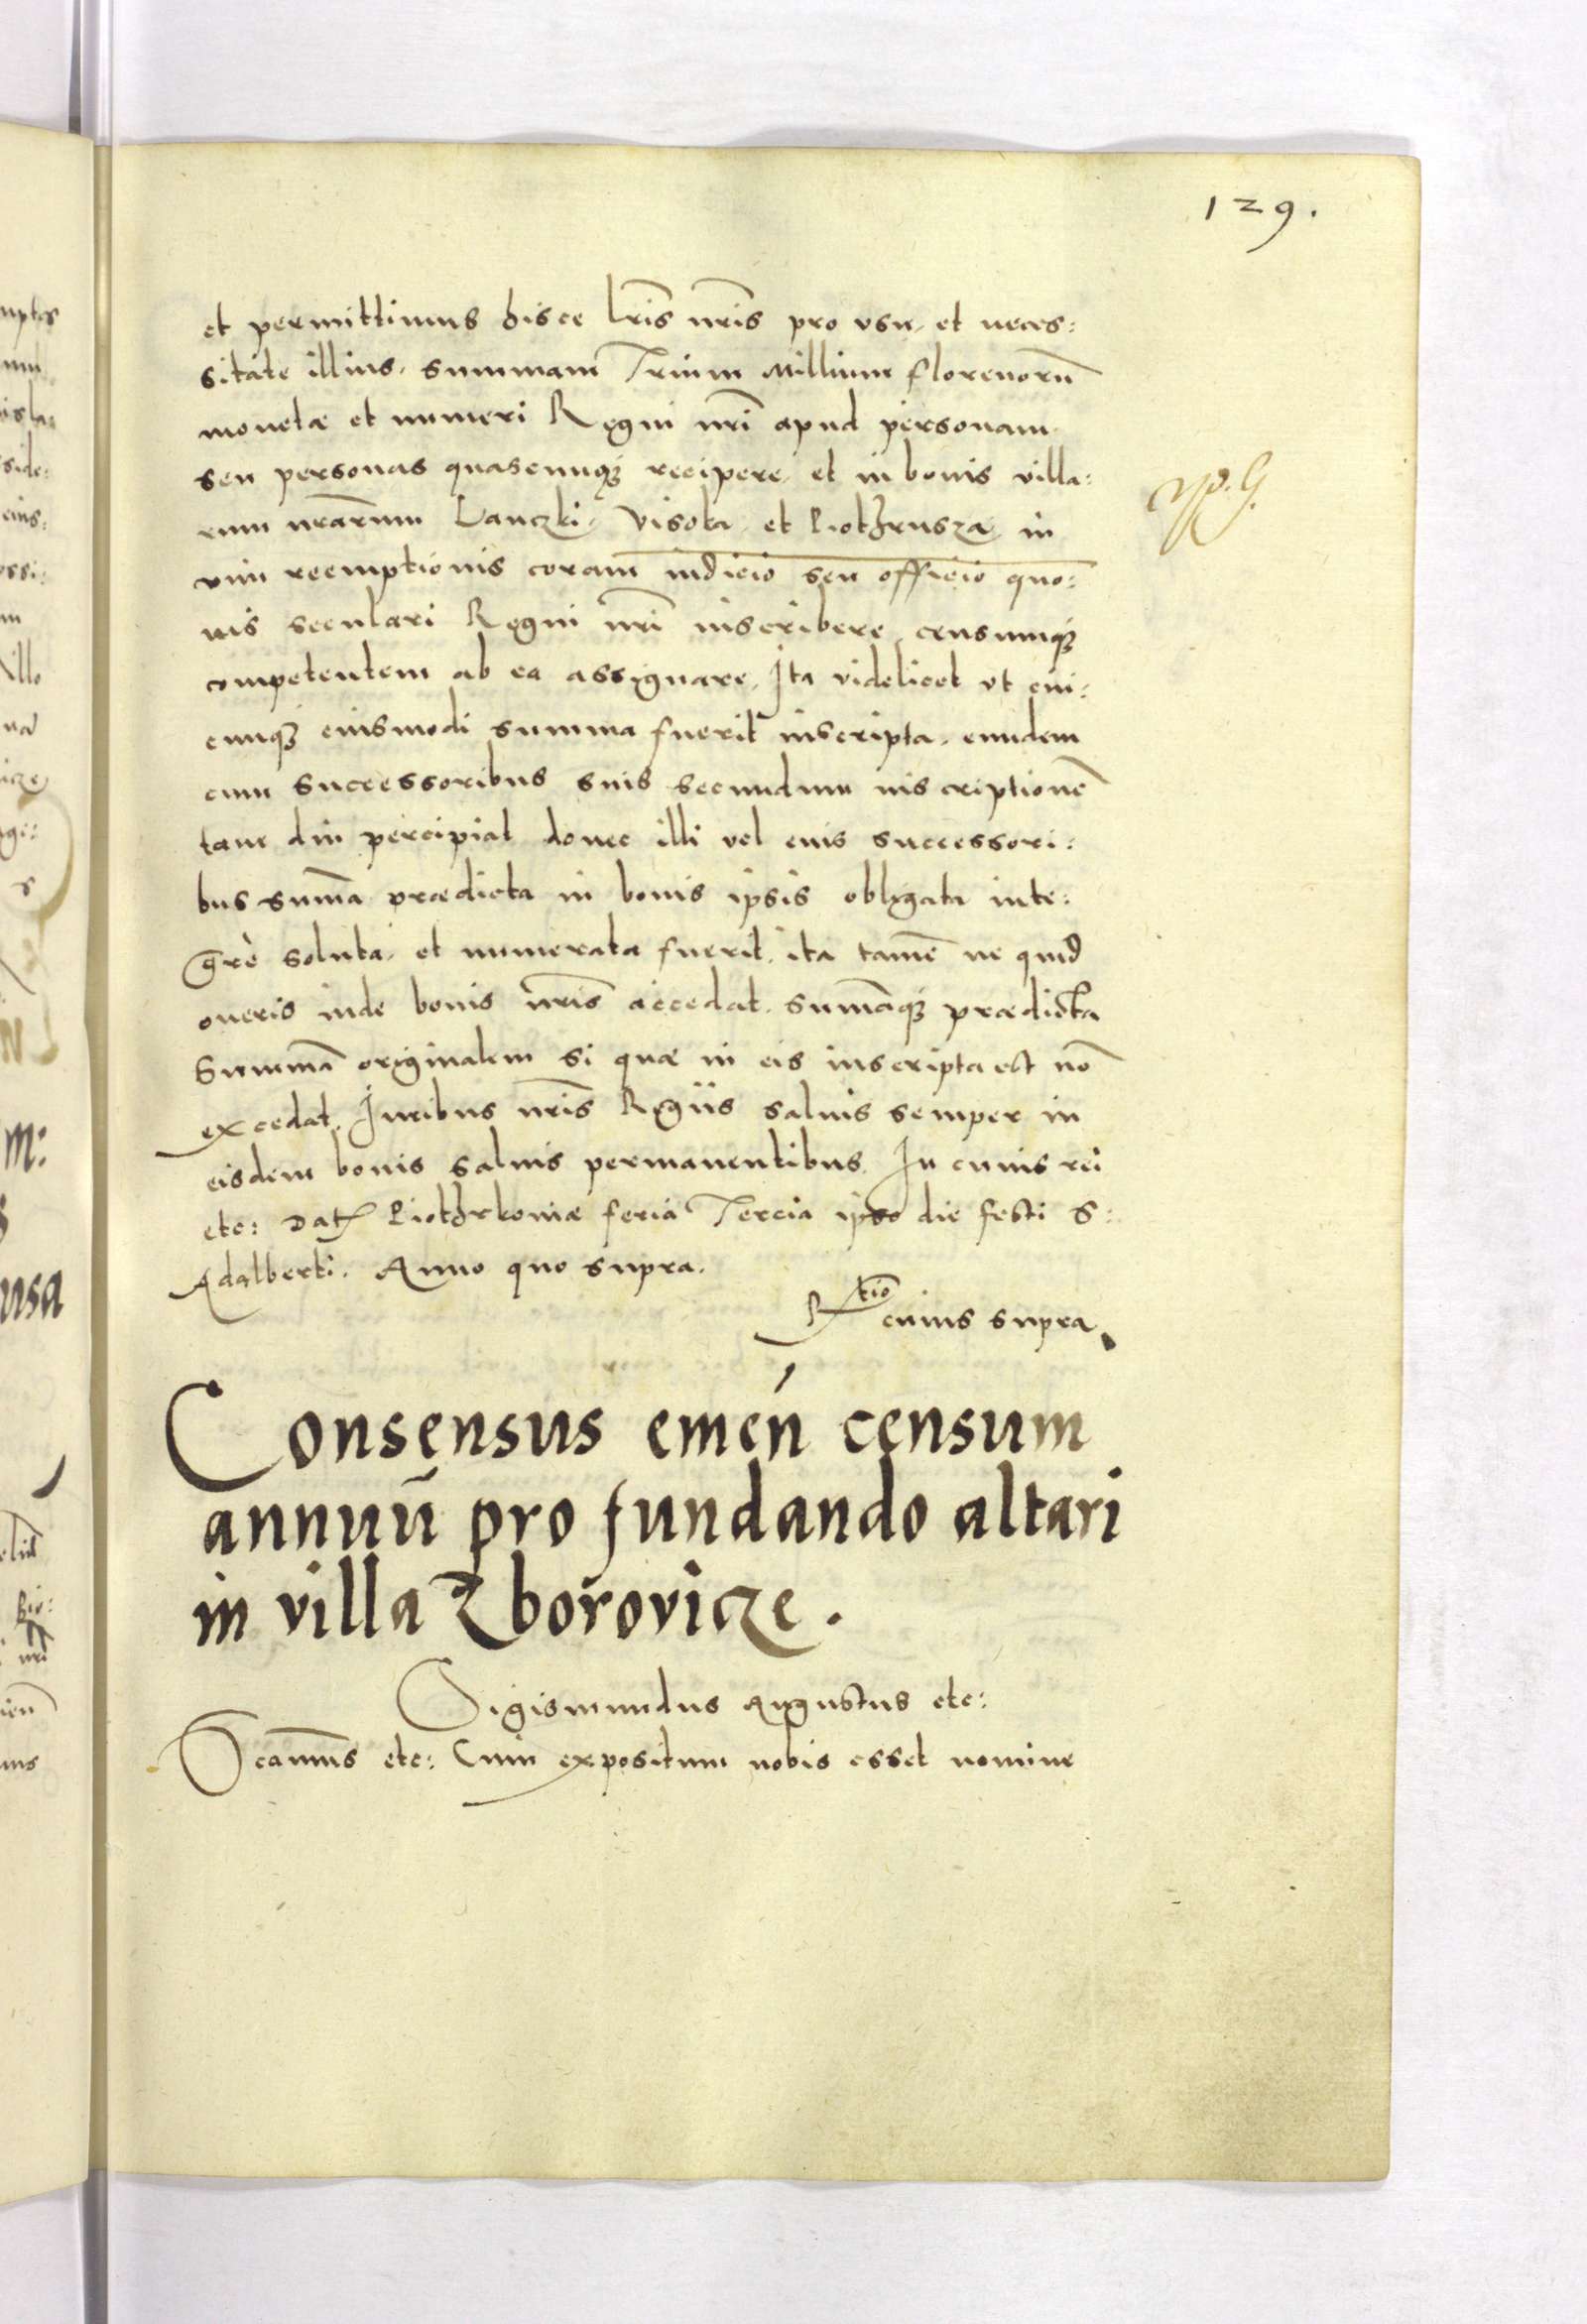 129.
et permittimus hisce lr̃is nr̃is pro vsu, et neces:
sitate illius, summam Trium Millium florenorũ
monetæ et numeri Regni nr̃i apud personam
seu personas quascunq3 recipere, et in bonis villa:
rum nr̃arum Lanczki, Visoka, et Piothrusza, in
vim reemptionis coram iudicio seu officio quo:
uis seculari Regni nr̃i inscribere, censumq3
competentem ab ea assignare, Ita videlicet vt cui:
cunq3 eiusmodi summa fuerit inscripta, eundem
cum successoribus suis secundum inscriptionẽ
tam diu percipiat donec illi vel eius successori:
bus sum̃a prædicta in bonis ipsis obligata inte:
grè soluta, et numerata fuerit, ita tamẽ ne quid
oneris inde bonis nr̃is accedat, Sum̃aq3 prædicta
Summã originalem si quæ in eis inscripta est nõ
excedat. Iuribus nr̃is Regiis saluis semper in
eisdem bonis saluis permanentibus. In cuius rei
etc: Dat̃ Piothrkoviæ feria Tercia ipso die festi S:
Adalberti. Anno quo supra.
Rtio cuius supra
Consensus emeñ censum
annuũ pro fundando altari
in villa Zborovicze.
Sigismundus Augustus etc:
Significamus etc: Cum expositum nobis esset nomine